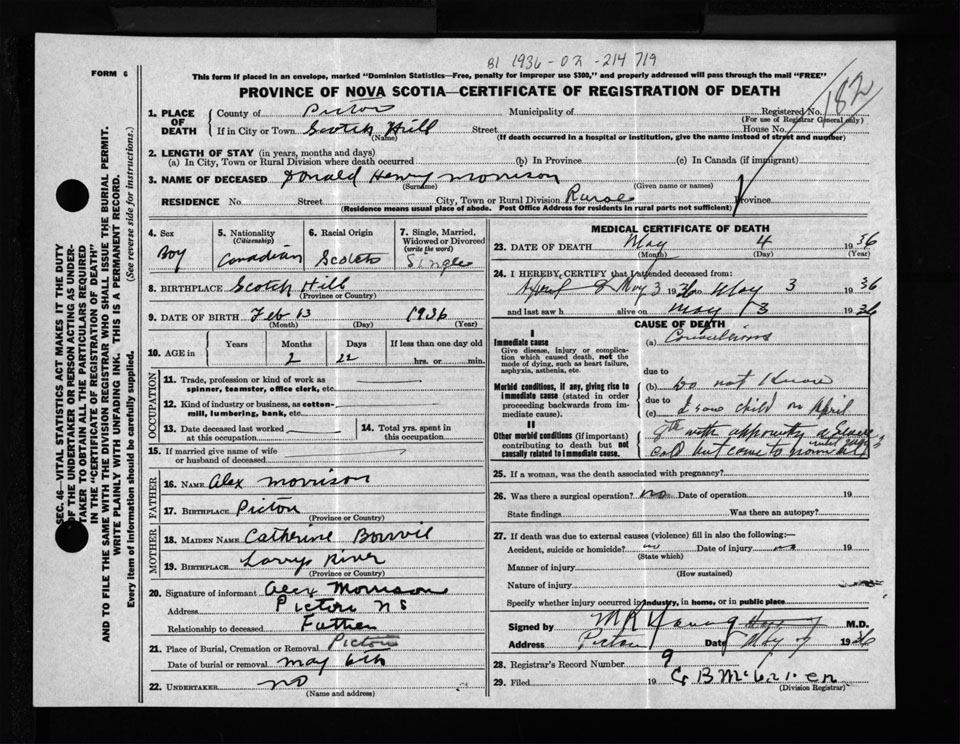 81 1936-02-214719
FORM 6
This form if placed in an envelope, marked "Dominion Statistics—Free, penalty for improper use $300," and properly addressed will pass through the mail "FREE"
PROVINCE OF NOVA SCOTIA—CERTIFICATE OF REGISTRATION OF DEATH
SEC. 46—VITAL STATISTICS ACT MAKES IT THE DUTY
OF THE UNDERTAKER OR PERSON ACTING AS UNDER-
TAKER TO OBTAIN ALL THE PARTICULARS REQUIRED
IN THE "CERTIFICATE OF REGISTRATION OF DEATH"
AND TO FILE THE SAME WITH THE DIVISION REGISTRAR WHO SHALL ISSUE THE BURIAL PERMIT.
WRITE PLAINLY WITH UNFADING INK. THIS IS A PERMANENT RECORD.
Every item of Information should be carefully supplied. (See reverse side for instructions.)
1. PLACE OF DEATH
County of Pictou Municipality of Registered No. 182
(For use of Registrar General only)
If in City or Town Scotch Hill Street House No.
(Name) (If death occurred in a hospital or institution, give the name instead of street and number)
2. LENGTH OF STAY (in years, months and days)
(a) In City, Town or Rural Division where death occurred (b) In Province (c) In Canada (if immigrant)
3. NAME OF DECEASED Donald Henry Morrison
(Surname) (Given name or names)
RESIDENCE No. Street City, Town or Rural Division Rural Province
(Residence means usual place of abode. Post Office Address for residents in rural parts not sufficient)
4. Sex
Boy
5. Nationality
(Citizenship)
Canadian
6. Racial Origin
Scotch
7. Single, Married,
Widowed or Divorced
(write the word)
Single
8. BIRTHPLACE Scotch Hill
(Province or Country)
9. DATE OF BIRTH Feb 13 1936
(Month) (Day) (Year)
10. AGE in
Years Months Days If less than one day old
2 22 hrs. or min.
OCCUPATION
11. Trade, profession or kind of work as
spinner, teamster, office clerk, etc.
12. Kind of industry or business, as cotton-
mill, lumbering, bank, etc.
13. Date deceased last worked
at this occupation
14. Total yrs. spent in
this occupation
15. If married give name of wife
or husband of deceased
FATHER
16. NAME Alex Morrison
17. BIRTHPLACE Pictou
(Province or Country)
MOTHER
18. MAIDEN NAME Catherine
19. BIRTHPLACE River
(Province or Country)
20. Signature of informant Alex Morrison
Address Pictou NS
Relationship to deceased Father
21. Place of Burial, Cremation or Removal Pictou
Date of burial or removal May 6th
22. UNDERTAKER no
(Name and address)
MEDICAL CERTIFICATE OF DEATH
23. DATE OF DEATH May 4 1936
(Month) (Day) (Year)
24. I HEREBY CERTIFY that I attended deceased from:
April 8 May 3 1936 to May 3 1936
and last saw h alive on May 3 1936
CAUSE OF DEATH
I
Immediate cause
Give disease, injury or complica-
tion which caused death, not the
mode of dying, such as heart failure,
asphyxia, asthenia, etc.
(a) Convulsions
due to
Morbid conditions, if any, giving rise to
immediate cause (stated in order
proceeding backwards from im-
mediate cause).
(b) Do not know
due to
(c) I saw child on April
8th with
Cold but
II
Other morbid conditions (if important)
contributing to death but not
causally related to immediate cause.
25. If a woman, was the death associated with pregnancy?
26. Was there a surgical operation? no Date of operation 19
State findings Was there an autopsy?
27. If death was due to external causes (violence) fill in also the following:—
Accident, suicide or homicide? no Date of injury no 19
(State which)
Manner of injury
(How sustained)
Nature of injury
Specify whether injury occurred in industry, in home, or in public place
Signed by M.D.
Address Pictou Date May 7 1936
28. Registrar's Record Number 9
29. Filed 19
(Division Registrar)